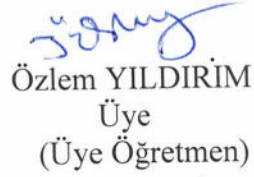 Özlem YILDIRIM
Üye
(Üye Öğretmen)